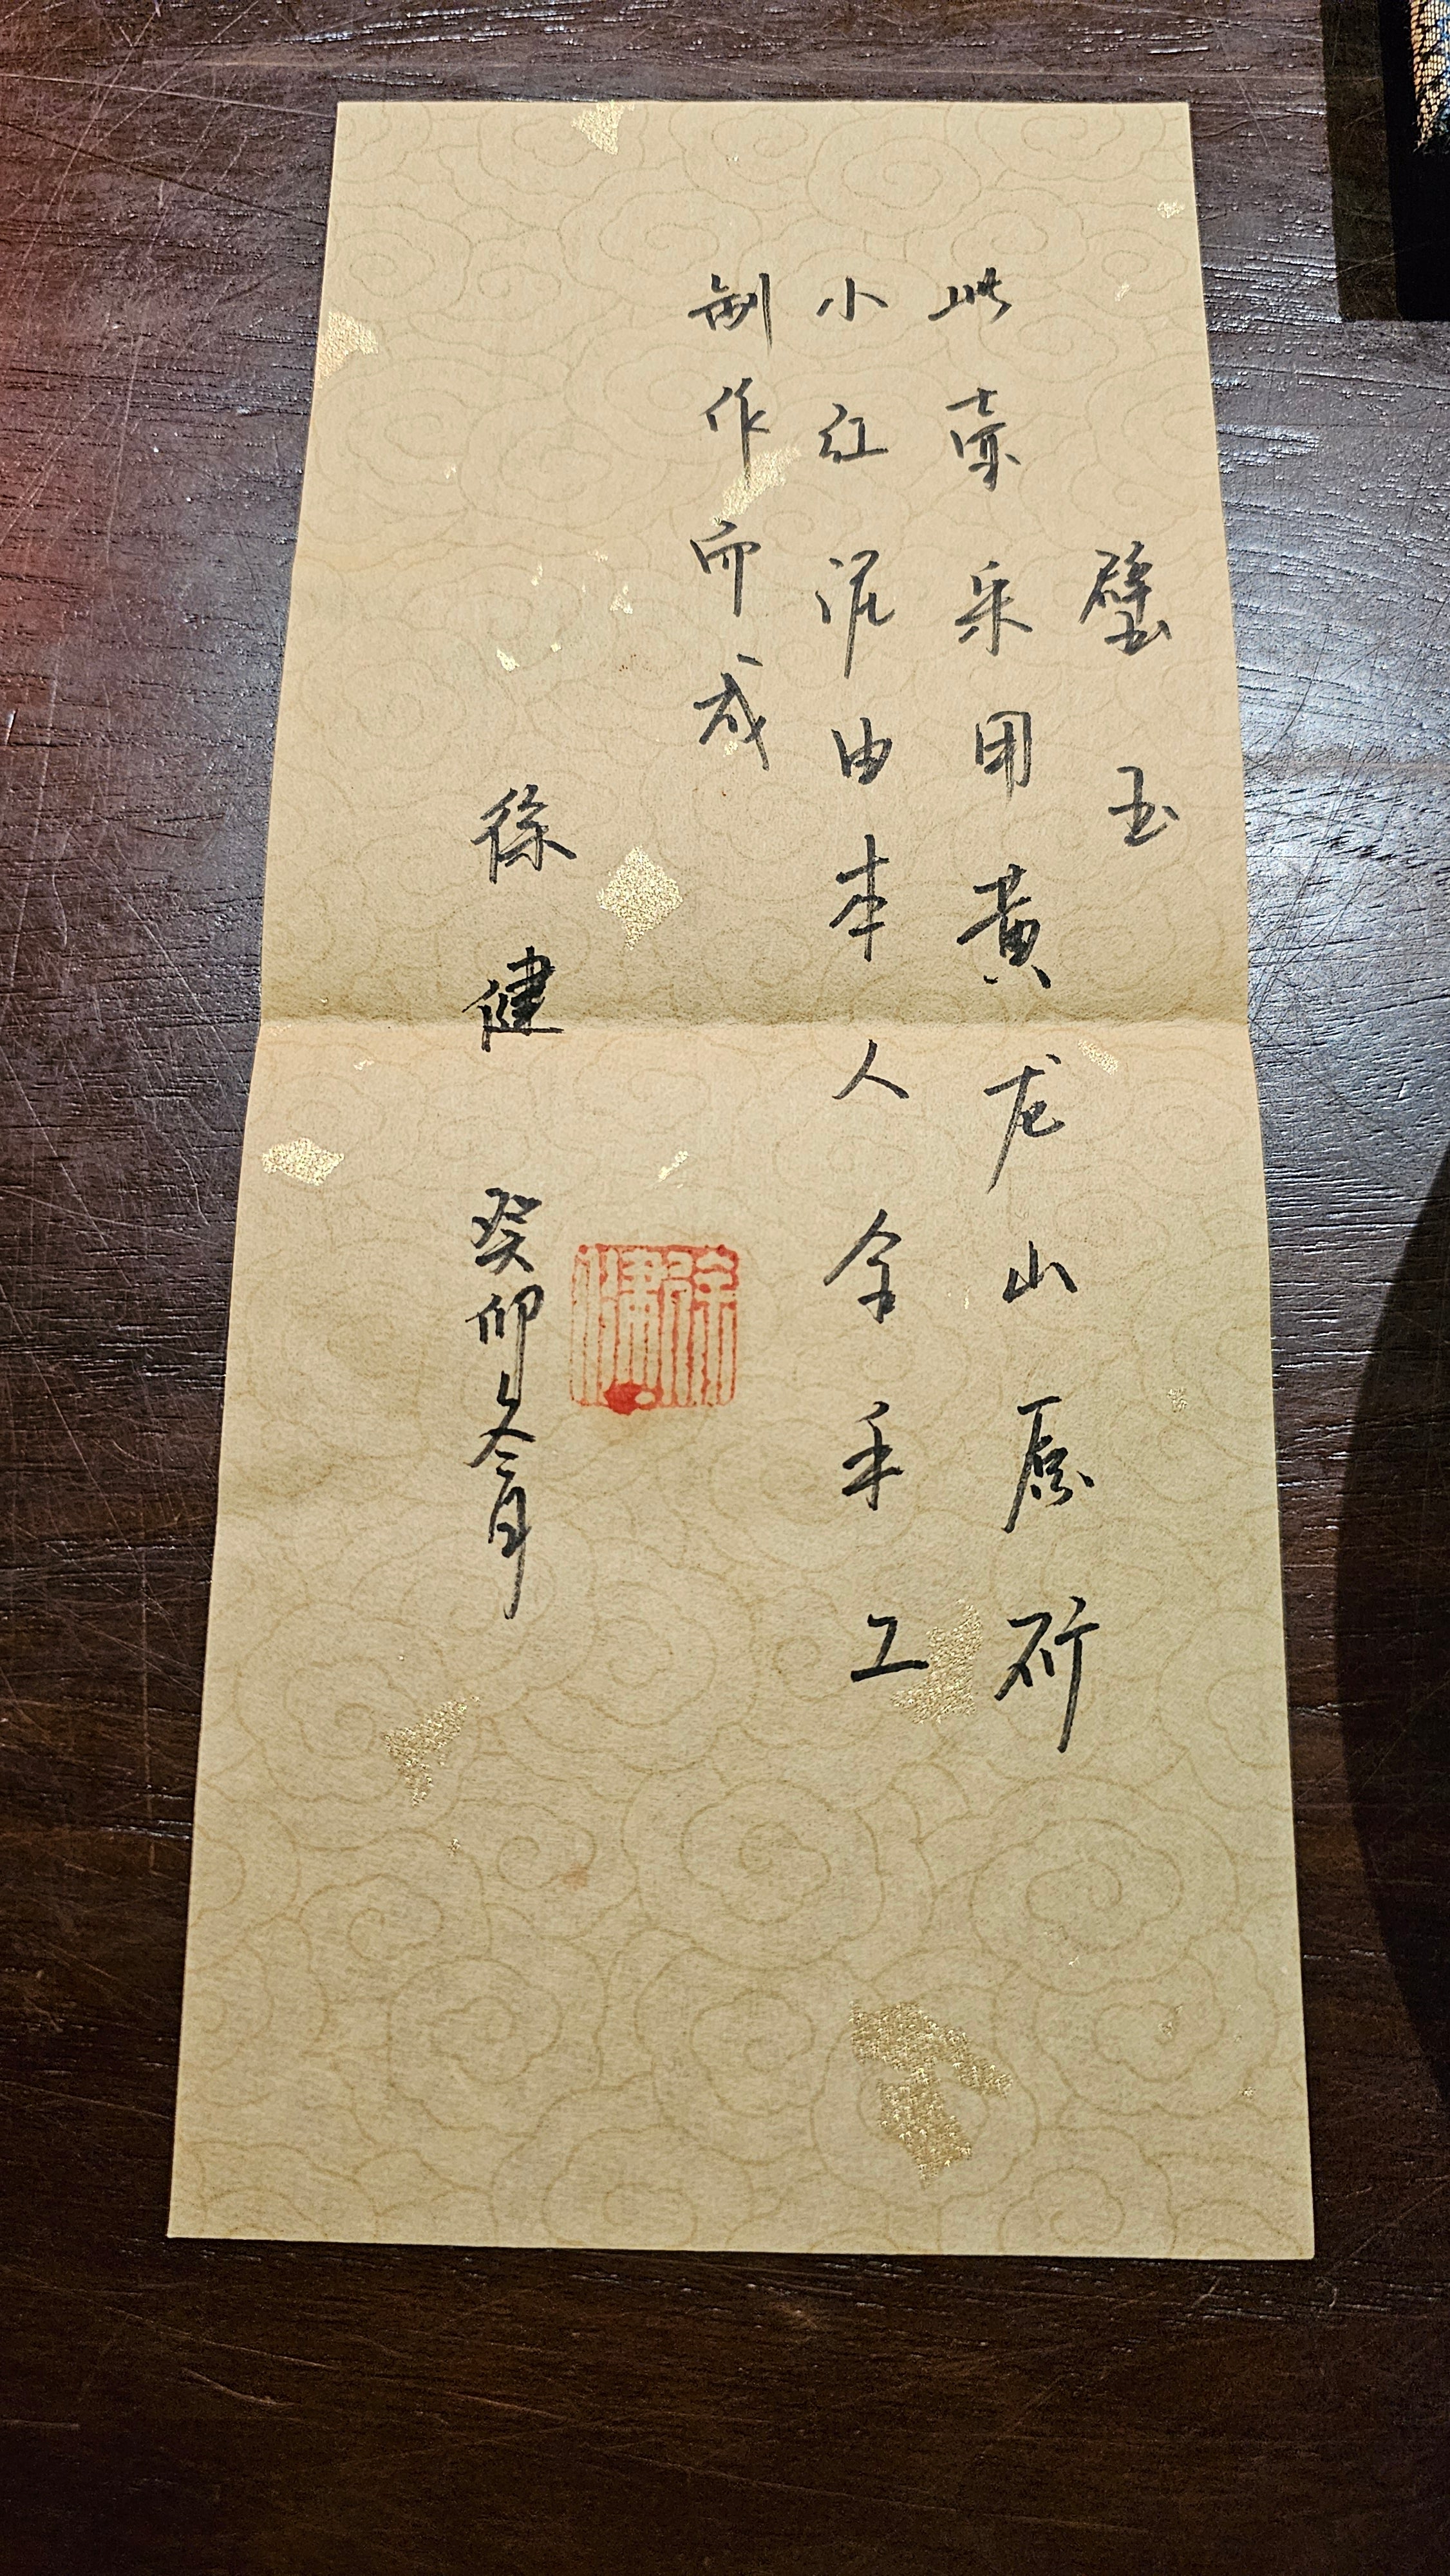 璧玉
此壶采用黄龙山原矿
小红泥由本人全手工
制作而成
徐健 癸卯冬月